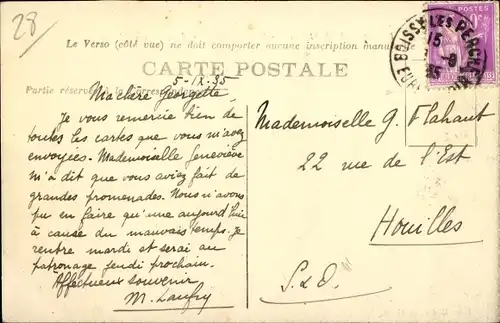 28
Le Verso (côté vue) ne doit comporter aucune inscription
CARTE POSTALE
Partie réservée à la correspondance
5-9-35
Ma chère Georgette,
Je vous remercie bien de
toutes les cartes que vous m'avez
envoyées. Mademoiselle Geneviève
m'a dit que vous aviez fait de
grandes promenades. Nous n'avons
pu en faire qu'une aujourd'hui
à cause du mauvais temps. Je
rentre mardi et serai au
patronage jeudi prochain.
Affectueux souvenir
M.
Mademoiselle G. Flahaut
22 rue de l'Est
Houilles
S. & O.
POSTES
BOISSY-LES-PERCHE
15